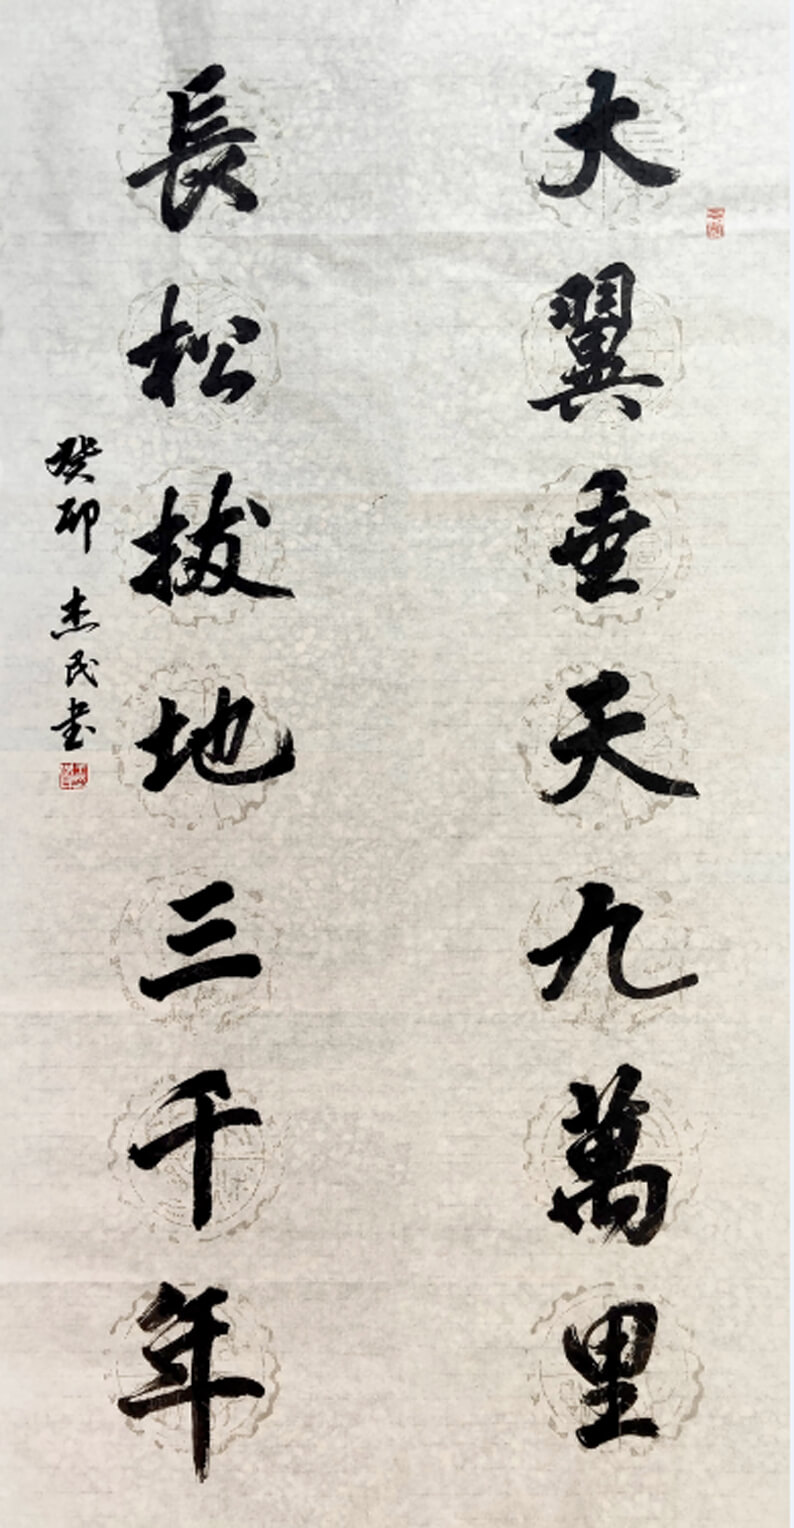 大翼垂天九萬里
長松拔地三千年
癸卯 杰民书